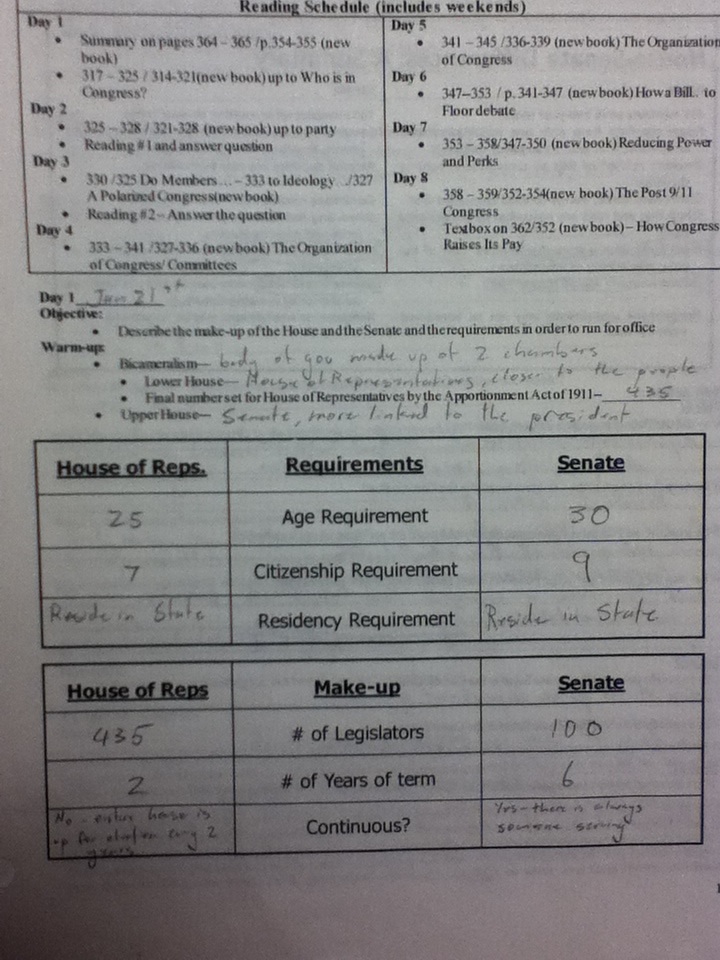 Reading Schedule (includes weekends)
Day 1
• Summary on pages 364 – 365 /p.354-355 (new
book)
• 317 – 325 / 314-321(new book) up to Who is in
Congress?
Day 2
• 325 – 328 / 321-328 (new book) up to party
• Reading #1 and answer question
Day 3
• 330 /325 Do Members… – 333 to Ideology ../327
A Polarized Congress(new book)
• Reading #2 – Answer the question
Day 4
• 333 – 341 /327-336 (new book) The Organization
of Congress/ Committees
Day 5
• 341 – 345 /336-339 (new book) The Organization
of Congress
Day 6
• 347–353 / p. 341-347 (new book) How a Bill.. to
Floor debate
Day 7
• 353 – 358/347-350 (new book) Reducing Power
and Perks
Day 8
• 358 – 359/352-354(new book) The Post 9/11
Congress
• Textbox on 362/352 (new book) – How Congress
Raises Its Pay
Day 1 21st
Objective:
• Describe the make-up of the House and the Senate and the requirements in order to run for office
Warm-up:
• Bicameralism— body of gov made up of 2 chambers
• Lower House— House of Representatives, closer to the people
• Final number set for House of Representatives by the Apportionment Act of 1911– 435
• Upper House— Senate, more linked to the president
House of Reps. Requirements Senate
25 Age Requirement 30
7 Citizenship Requirement 9
Reside in State Residency Requirement Reside in State
House of Reps Make-up Senate
435 # of Legislators 100
2 # of Years of term 6
No - entire house is
up for election every 2
years
Continuous?
Yes - there is always
someone serving